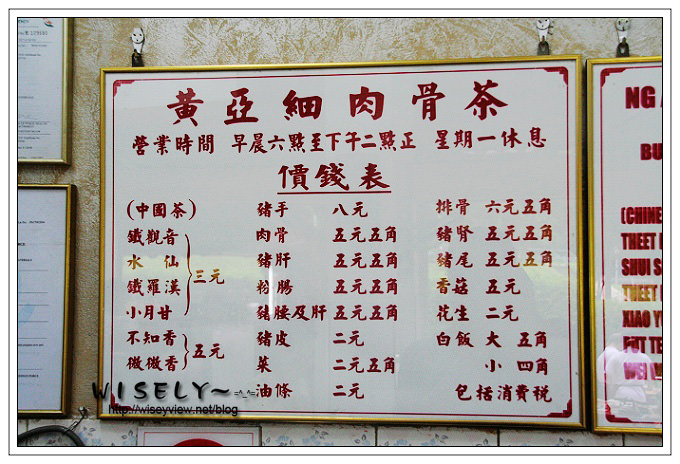 黃亞細肉骨茶
營業時間 早晨六點至下午二點正 星期一休息
價錢表
(中國茶)
鐵觀音
水仙
鐵羅漢
小月甘
三元
不知香
微微香
五元
豬手 八元
肉骨 五元五角
豬肝 五元五角
粉腸 五元五角
豬腰及肝 五元五角
豬皮 二元
菜 二元五角
油條 二元
排骨 六元五角
豬腎 五元五角
豬尾 五元五角
香菇 五元
花生 二元
白飯 大 五角
小 四角
包括消費税
NG
BU
(CHINE
THEET
SHUI S
THEET
XIAO YU
PUT TE
WEI
WISELY~=^_^=
http://wiseyview.net/blog